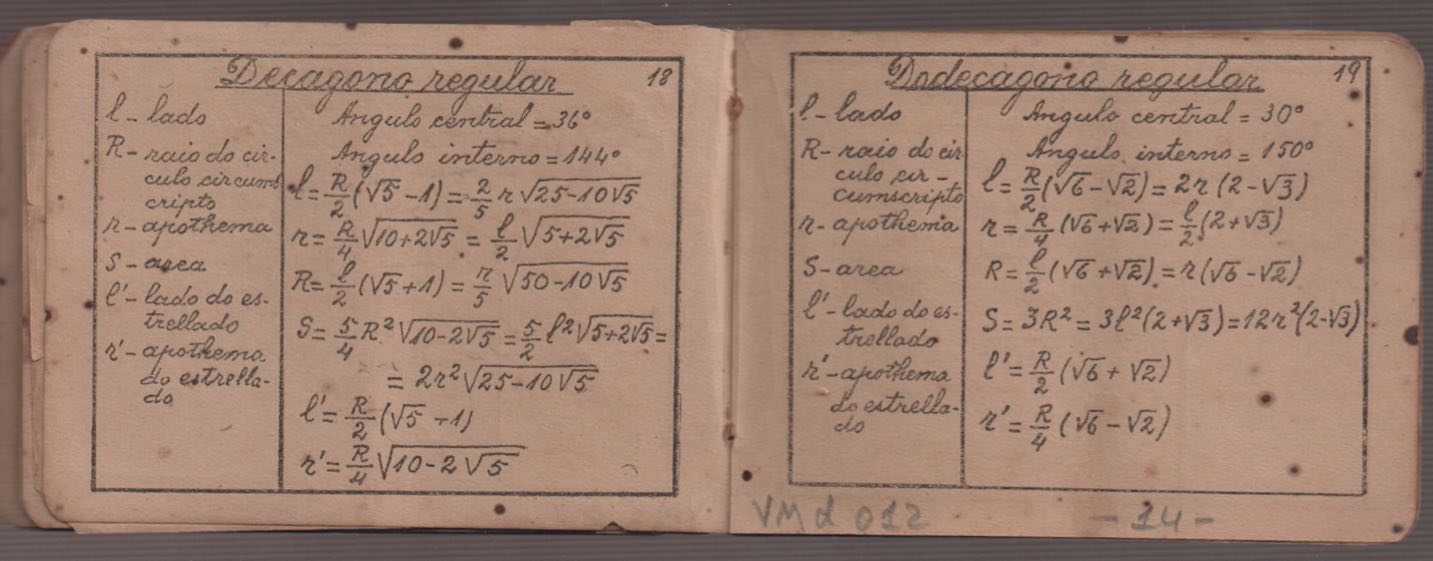 Decagono regular 18
l - lado
R - raio do cir-
culo circums
cripto
r - apothema
S - area
l' - lado do es-
trellado
r' - apothema
do estrella-
do
Angulo central = 36°
Angulo interno = 144°
l = R/2 (√5 - 1) = 2/5 r √(25 - 10√5)
r = R/4 √(10 + 2√5) = l/2 √(5 + 2√5)
R = l/2 (√5 + 1) = r/5 √(50 - 10√5)
S = 5/4 R² √(10 - 2√5) = 5/2 l² √(5 + 2√5) =
= 2r² √(25 - 10√5)
l' = R/2 (√5 + 1)
r' = R/4 √(10 - 2√5)
Dodecagono regular 19
l - lado
R - raio do cir
culo cir -
cumscripto
r - apothema
S - area
l' - lado do es-
trellado
r' - apothema
do estrella-
do
Angulo central = 30°
Angulo interno = 150°
l = R/2 (√6 - √2) = 2r (2 - √3)
r = R/4 (√6 + √2) = l/2 (2 + √3)
R = l/2 (√6 + √2) = r (√6 - √2)
S = 3R² = 3l² (2 + √3) = 12r² (2 - √3)
l' = R/2 (√6 + √2)
r' = R/4 (√6 - √2)
VMd 012 - 14 -